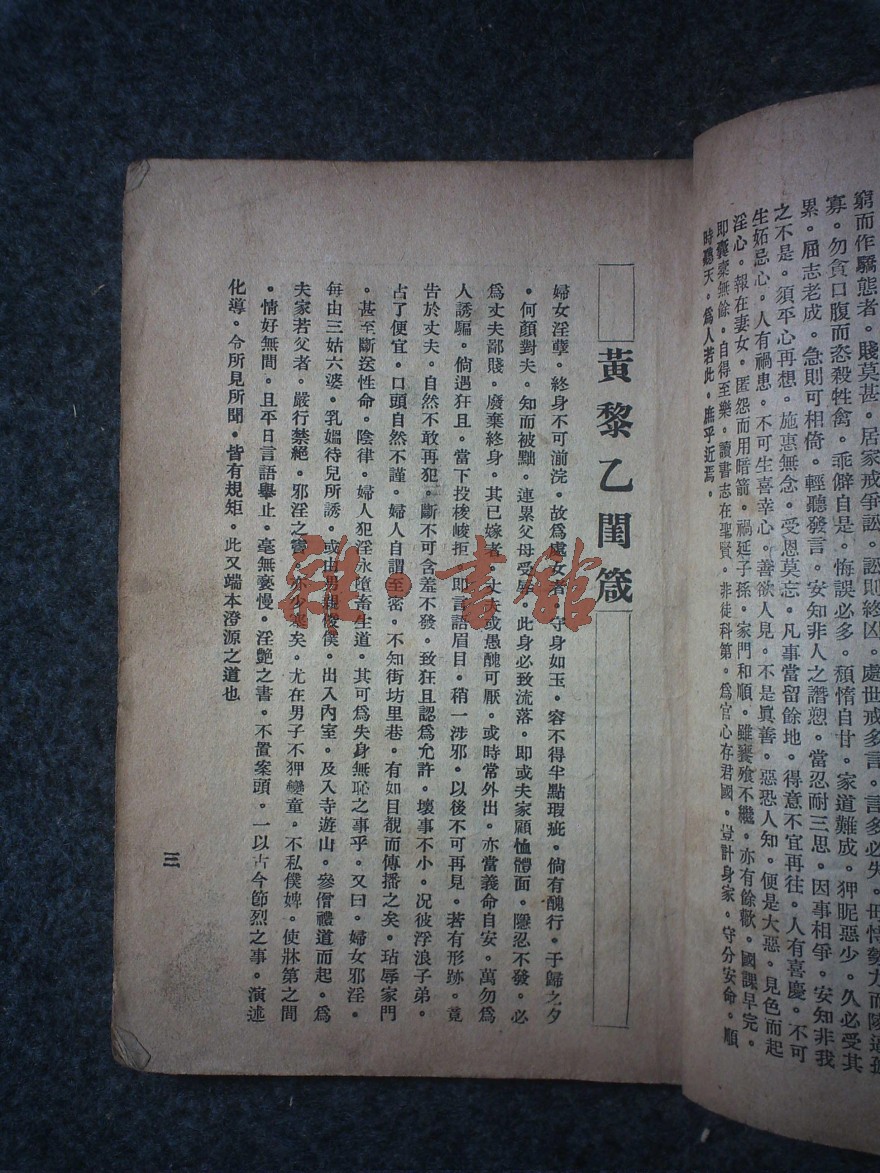 窮而作驕態者。賤莫甚。居家戒爭訟。訟則終凶。處世戒多言。言多必失。毋恃勢力而陵逼孤
寡。勿貪口腹而恣殺牲禽。乖僻自是。悔誤必多。頹惰自甘。家道難成。狎昵惡少。久必受其
累。屈志老成。急則可相倚。輕聽發言。安知非人之譖愬。當忍耐三思。因事相爭。安知非我
之不是。須平心再想。施惠無念。受恩莫忘。凡事當留餘地。得意不宜再往。人有喜慶。不可
生妬忌心。人有禍患。不可生喜幸心。善欲人見。不是眞善。惡恐人知。便是大惡。見色而起
淫心。報在妻女。匿怨而用暗箭。禍延子孫。家門和順。雖饔飧不繼。亦有餘歡。國課早完。
即囊橐無餘。自得至樂。讀書志在聖賢。非徒科第。爲官心存君國。豈計身家。守分安命。順
時聽天。爲人若此。庶乎近焉。
黃黎乙閨箴
婦女淫孽。終身不可湔浣。故爲處女者。守身如玉。容不得半點瑕疵。倘有醜行。于歸之夕
。何顏對夫。知而被黜。連累父母受辱。此身必致流落。即或夫家顧恤體面。隱忍不發。必
爲丈夫鄙賤。廢棄終身。其已嫁者。丈夫或愚醜可厭。或時常外出。亦當義命自安。萬勿爲
人誘騙。倘遇狂且。當下投梭峻拒。即言語眉目。稍一涉邪。以後不可再見。若有形跡。竟
告於丈夫。自然不敢再犯。斷不可含羞不發。致狂且認爲允許。壞事不小。况彼浮浪子弟。
占了便宜。口頭自然不謹。婦人自謂至密。不知街坊里巷。有如目覩而傳播之矣。玷辱家門
。甚至斷送性命。陰律。婦人犯淫永墮畜生道。其可爲失身無恥之事乎。又曰。婦女邪淫。
每由三姑六婆。乳媼待兒所誘。或由男親俊僕。出入內室。及入寺遊山。參僧禮道而起。爲
夫家若父者。嚴行禁絕。邪淫之竇。亦少塞矣。尤在男子不狎孌童。不私僕婢。使牀第之間
。情好無間。且平日言語舉止。毫無褻慢。淫艷之書。不置案頭。一以古今節烈之事。演述
化導。令所見所聞。皆有規矩。此又端本澄源之道也
三
雜·書館